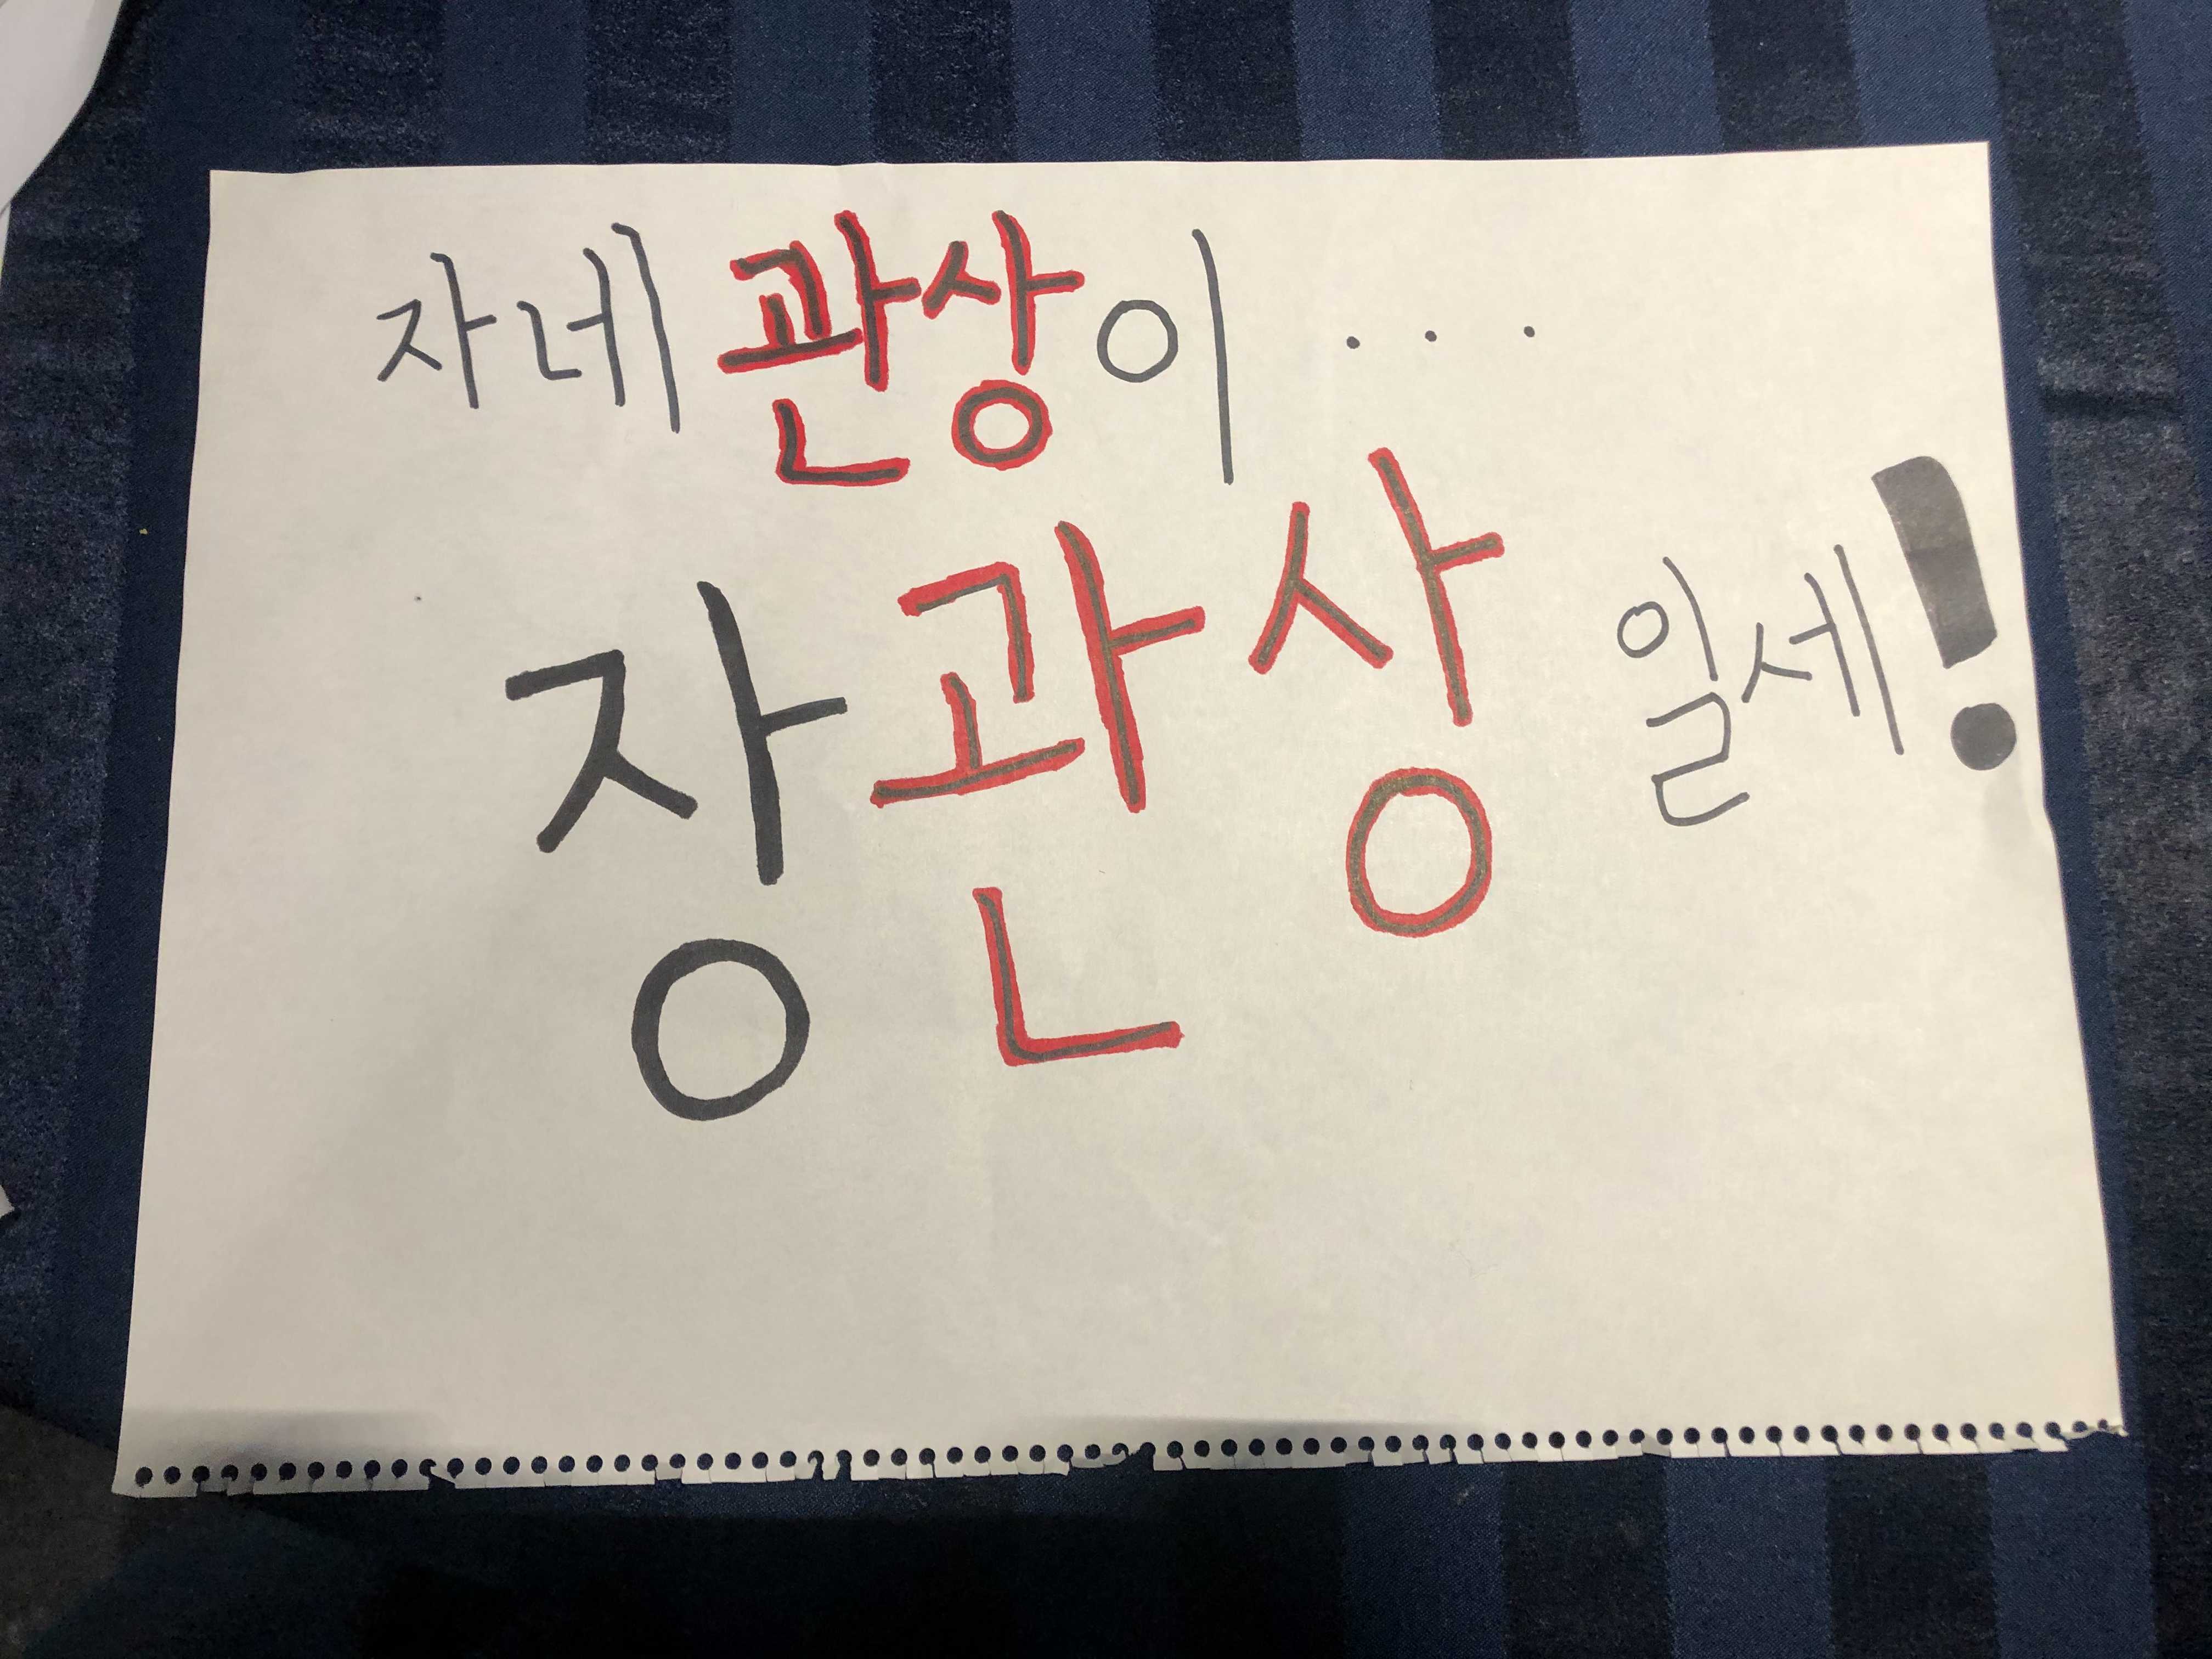 자네 관상이 . . .
장관상 일세!